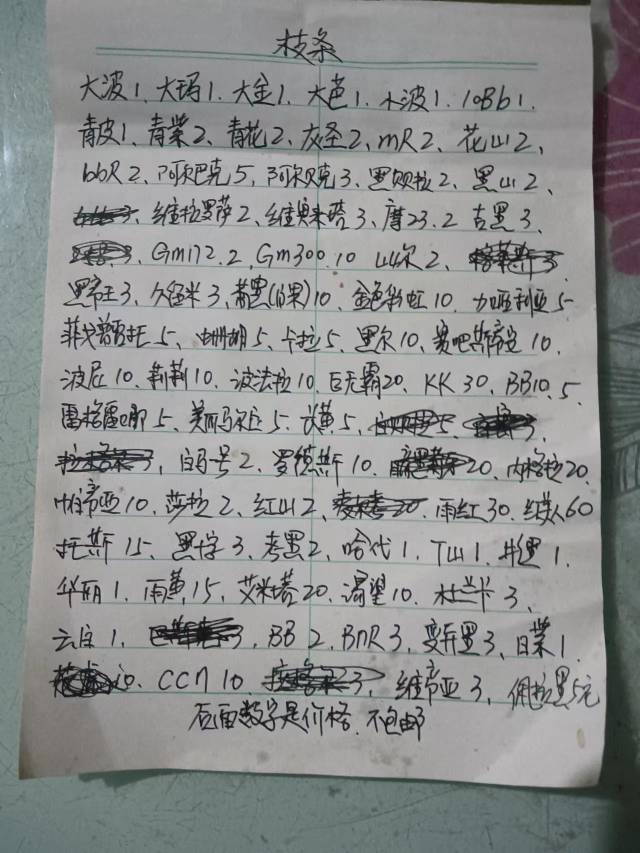 枝条
大波1、大玛1、大金1、大芭1、水波1、10Bb1、
青皮1、青業2、青花2、灰圣2、mR2、花山2、
bbR2、阿尔巴克5、阿尔贝克3、黑奴拉2、黑山2、
维拉罗萨2、维奥米塔3、摩23.2 吉黑3、
Gm172.2、Gm300.10 山尔2、
黑帝王3、久留米3、蒂黑(白果)10、金色彩虹10、加亚利亚5
菲戈普托5、珊瑚5、卡拉5、黑尔10、赛吧斯帝安10、
波尼10、莉莉10、波法拉10、巨无霸20、KK30、BB10.5、
雷格雷娜5、美丽马尔丘5、长黄5、
白马号2、罗德斯10、20、内格拉20、
帕帝亚10、莎拉2、红山2、雨红30、红美人60
托斯15、黑字3、考黑2、哈代1、T山1、牛黑1、
华丽1、雨黄15、艾米塔20、渴望10、杜兰卡3、
云白1、BB2、BnR3、变异黑3、日業1、
CCN10、维帝亚3、佩拉黑5元
后面数字是价格、不包邮